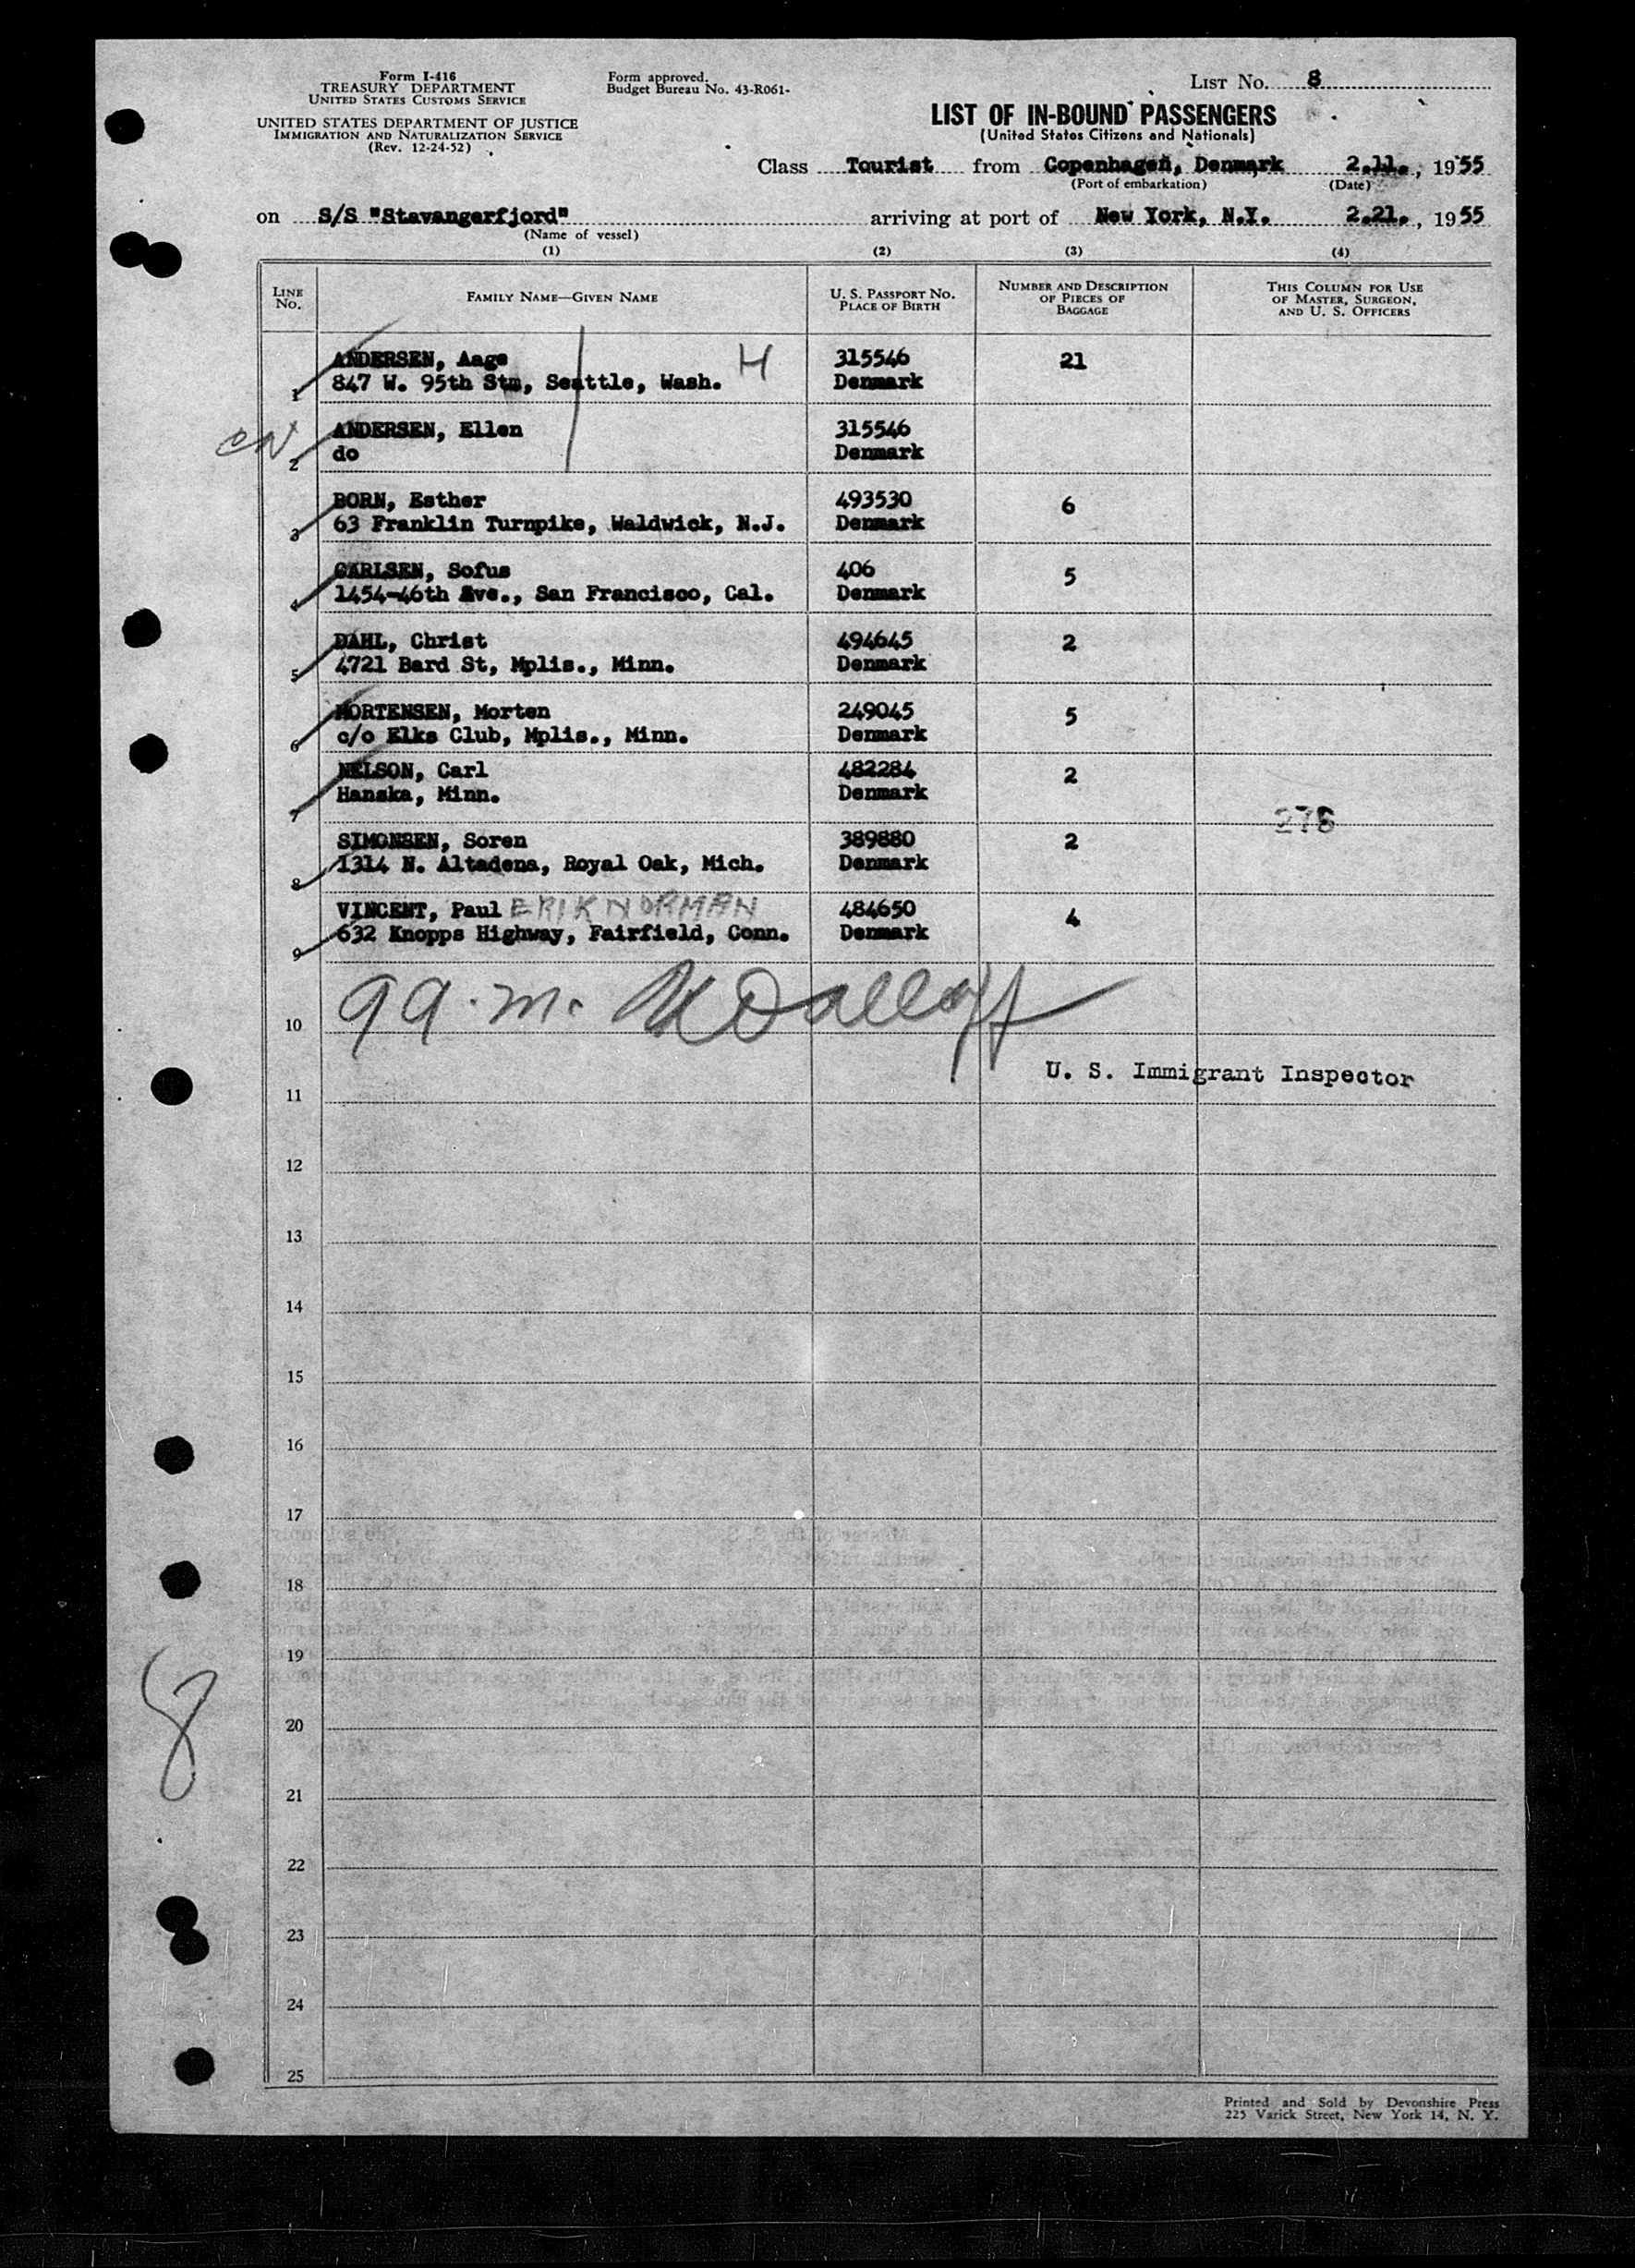 Form I-416
TREASURY DEPARTMENT
UNITED STATES CUSTOMS SERVICE
UNITED STATES DEPARTMENT OF JUSTICE
IMMIGRATION AND NATURALIZATION SERVICE
(Rev. 12-24-52)
Form approved.
Budget Bureau No. 43-R061-
LIST No. 8
LIST OF IN-BOUND PASSENGERS
(United States Citizens and Nationals)
Class Tourist from Copenhagen, Denmark 2.11., 1955
(Port of embarkation) (Date)
on S/S "Stavangerfjord" arriving at port of New York, N.Y. 2.21., 1955
(Name of vessel)
(1) (2) (3) (4)
LINE No. FAMILY NAME—GIVEN NAME U. S. PASSPORT No. PLACE OF BIRTH NUMBER AND DESCRIPTION OF PIECES OF BAGGAGE THIS COLUMN FOR USE OF MASTER, SURGEON, AND U. S. OFFICERS
ANDERSEN, Aage H 315546 21
1 847 W. 95th Stm, Seattle, Wash. Denmark
ANDERSEN, Ellen 315546
2 do Denmark
BORN, Esther 493530 6
3 63 Franklin Turnpike, Waldwick, N.J. Denmark
CARLSEN, Sofus 406 5
4 1454-46th Ave., San Francisco, Cal. Denmark
DAHL, Christ 494645 2
5 4721 Bard St, Mplis., Minn. Denmark
MORTENSEN, Morten 249045 5
6 c/o Elks Club, Mplis., Minn. Denmark
NELSON, Carl 482284 2
7 Hanska, Minn. Denmark
276
SIMONSEN, Soren 389880 2
8 1314 N. Altadena, Royal Oak, Mich. Denmark
VINCENT, Paul ERIK NORMAN 484650 4
9 632 Knopps Highway, Fairfield, Conn. Denmark
10
U. S. Immigrant Inspector
11
12
13
14
15
16
17
18
19
8
20
21
22
23
24
25
Printed and Sold by Devonshire Press
225 Varick Street, New York 14, N. Y.